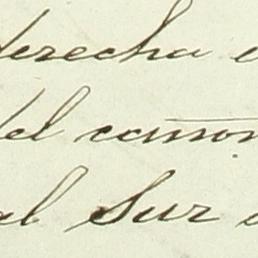 derecha
del cañon
al Sur